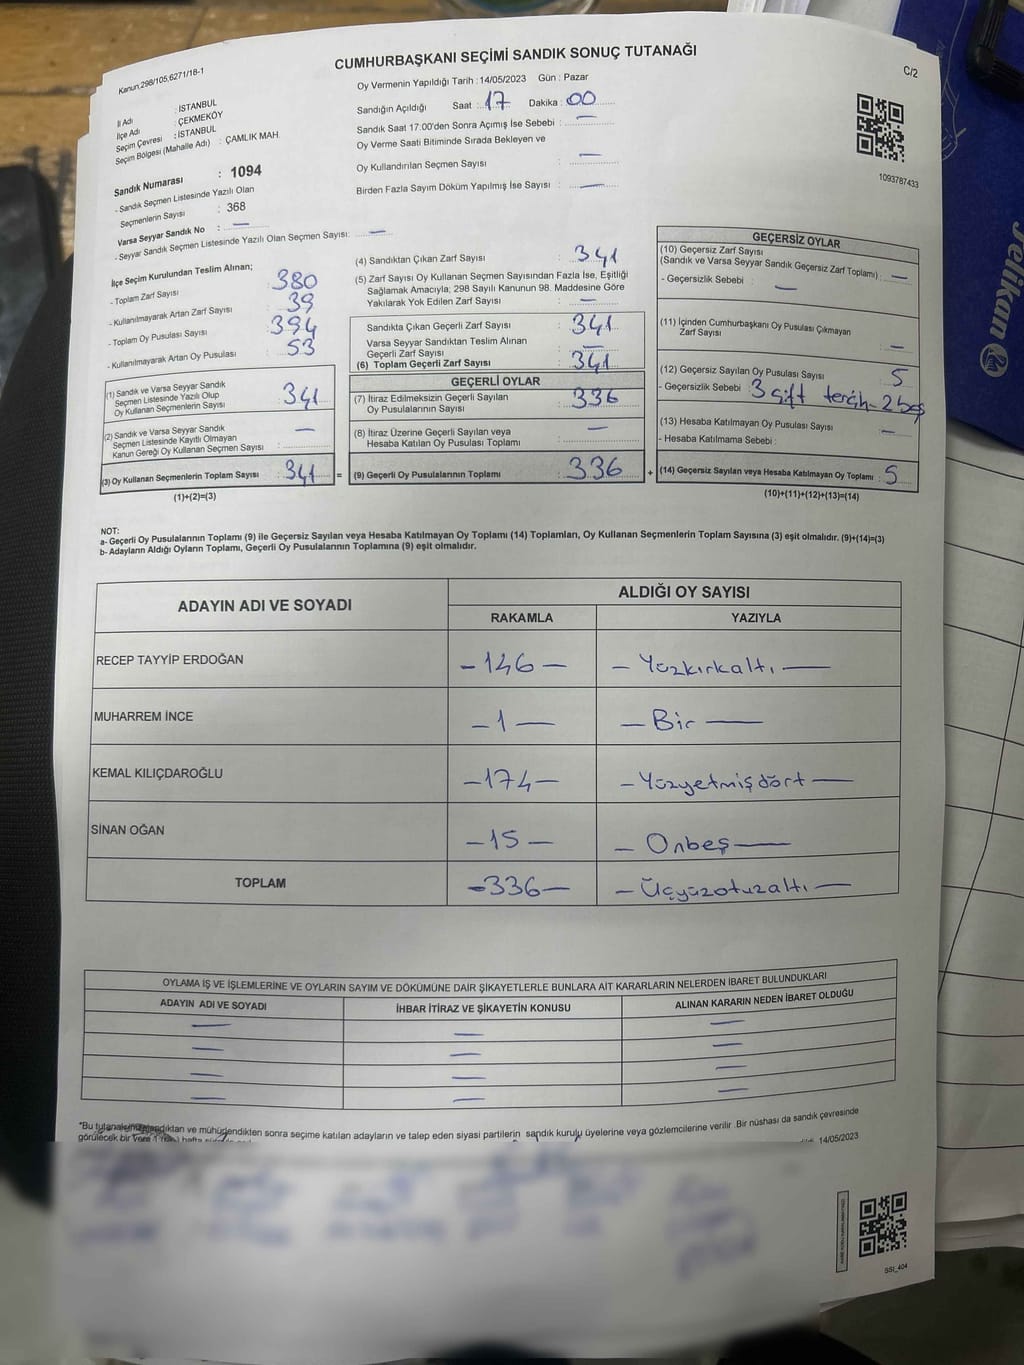 CUMHURBAŞKANI SEÇİMİ SANDIK SONUÇ TUTANAĞI
Kanun,298/105,6271/18-1
C/2
Oy Vermenin Yapıldığı Tarih : 14/05/2023 Gün : Pazar
İl Adı : İSTANBUL
İlçe Adı : ÇEKMEKÖY
Seçim Çevresi : İSTANBUL
Seçim Bölgesi (Mahalle Adı) : ÇAMLIK MAH.
Sandık Numarası : 1094
- Sandık Seçmen Listesinde Yazılı Olan
Seçmenlerin Sayısı : 368
Varsa Seyyar Sandık No : —
- Seyyar Sandık Seçmen Listesinde Yazılı Olan Seçmen Sayısı: —
Sandığın Açıldığı Saat : 17 Dakika : 00
Sandık Saat 17:00'den Sonra Açımış İse Sebebi : —
Oy Verme Saati Bitiminde Sırada Bekleyen ve
Oy Kullandırılan Seçmen Sayısı : —
Birden Fazla Sayım Döküm Yapılmış İse Sayısı : —
1093787433
İlçe Seçim Kurulundan Teslim Alınan;
- Toplam Zarf Sayısı : 380
- Kullanılmayarak Artan Zarf Sayısı : 39
- Toplam Oy Pusulası Sayısı : 394
- Kullanılmayarak Artan Oy Pusulası : 53
(1) Sandık ve Varsa Seyyar Sandık
Seçmen Listesinde Yazılı Olup
Oy Kullanan Seçmenlerin Sayısı : 341
(2) Sandık ve Varsa Seyyar Sandık
Seçmen Listesinde Kayıtlı Olmayan
Kanun Gereği Oy Kullanan Seçmen Sayısı : —
(3) Oy Kullanan Seçmenlerin Toplam Sayısı : 341 =
(1)+(2)=(3)
(4) Sandıktan Çıkan Zarf Sayısı : 341
(5) Zarf Sayısı Oy Kullanan Seçmen Sayısından Fazla İse, Eşitliği
Sağlamak Amacıyla; 298 Sayılı Kanunun 98. Maddesine Göre
Yakılarak Yok Edilen Zarf Sayısı : —
Sandıkta Çıkan Geçerli Zarf Sayısı : 341
Varsa Seyyar Sandıktan Teslim Alınan
Geçerli Zarf Sayısı : —
(6) Toplam Geçerli Zarf Sayısı : 341
GEÇERLİ OYLAR
(7) İtiraz Edilmeksizin Geçerli Sayılan
Oy Pusulalarının Sayısı : 336
(8) İtiraz Üzerine Geçerli Sayılan veya
Hesaba Katılan Oy Pusulası Toplamı : —
(9) Geçerli Oy Pusulalarının Toplamı : 336 +
GEÇERSİZ OYLAR
(10) Geçersiz Zarf Sayısı
(Sandık ve Varsa Seyyar Sandık Geçersiz Zarf Toplamı) : —
- Geçersizlik Sebebi : —
(11) İçinden Cumhurbaşkanı Oy Pusulası Çıkmayan
Zarf Sayısı : —
(12) Geçersiz Sayılan Oy Pusulası Sayısı : 5
- Geçersizlik Sebebi : 3 çift tercih-2 boş
(13) Hesaba Katılmayan Oy Pusulası Sayısı : —
- Hesaba Katılmama Sebebi :
(14) Geçersiz Sayılan veya Hesaba Katılmayan Oy Toplamı : 5
(10)+(11)+(12)+(13)=(14)
NOT:
a- Geçerli Oy Pusulalarının Toplamı (9) ile Geçersiz Sayılan veya Hesaba Katılmayan Oy Toplamı (14) Toplamları, Oy Kullanan Seçmenlerin Toplam Sayısına (3) eşit olmalıdır. (9)+(14)=(3)
b- Adayların Aldığı Oyların Toplamı, Geçerli Oy Pusulalarının Toplamına (9) eşit olmalıdır.
ADAYIN ADI VE SOYADI
ALDIĞI OY SAYISI
RAKAMLA YAZIYLA
RECEP TAYYİP ERDOĞAN -146- - Yüzkırkaltı -
MUHARREM İNCE -1- - Bir -
KEMAL KILIÇDAROĞLU -174- - Yüzyetmişdört -
SİNAN OĞAN -15- - Onbeş -
TOPLAM -336- - Üçyüzotuzaltı -
OYLAMA İŞ VE İŞLEMLERİNE VE OYLARIN SAYIM VE DÖKÜMÜNE DAİR ŞİKAYETLERLE BUNLARA AİT KARARLARIN NELERDEN İBARET BULUNDUKLARI
ADAYIN ADI VE SOYADI İHBAR İTİRAZ VE ŞİKAYETİN KONUSU ALINAN KARARIN NEDEN İBARET OLDUĞU
— — —
— — —
— — —
— — —
*Bu tutanak imzalandıktan ve mühürlendikten sonra seçime katılan adayların ve talep eden siyasi partilerin sandık kurulu üyelerine veya gözlemcilerine verilir. Bir nüshası da sandık çevresinde
görülecek bir yere 1 hafta
14/05/2023
SSI_404
Pelikan